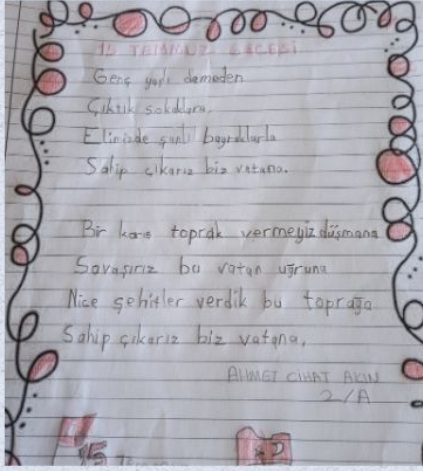 15 TEMMUZ GECESİ
Genç yaşlı demeden
Çıktık sokaklara.
Elimizde şanlı bayraklarla
Sahip çıkarız biz vatana.
Bir karış toprak vermeyiz düşmana
Savaşırız bu vatan uğruna
Nice şehitler verdik bu toprağa
Sahip çıkarız biz vatana.
AHMET CİHAT AKIN
2/A
15 TEMMUZ